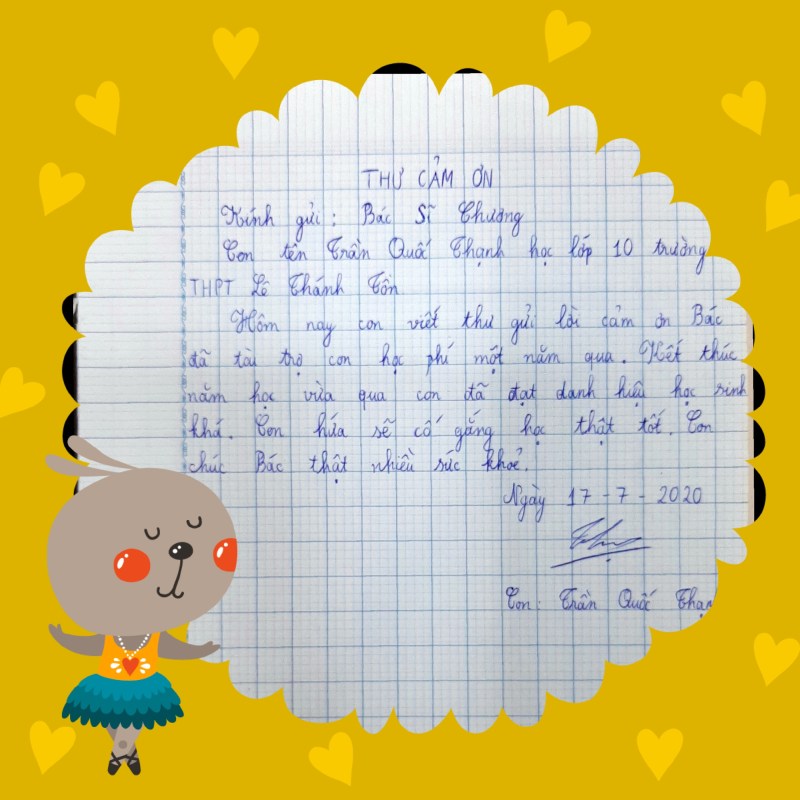 THƯ CẢM ƠN
Kính gửi : Bác Sĩ Chương
Con tên Trần Quốc Thạnh học lớp 10 trường
THPT Lê Thánh Tôn.
Hôm nay con viết thư gửi lời cảm ơn Bác
đã tài trợ con học phí một năm qua. Kết thúc
năm học vừa qua con đã đạt danh hiệu học sinh
khá. Con hứa sẽ cố gắng học thật tốt. Con
chúc Bác thật nhiều sức khoẻ.
Ngày 17 - 7 - 2020
Con: Trần Quốc Thạn